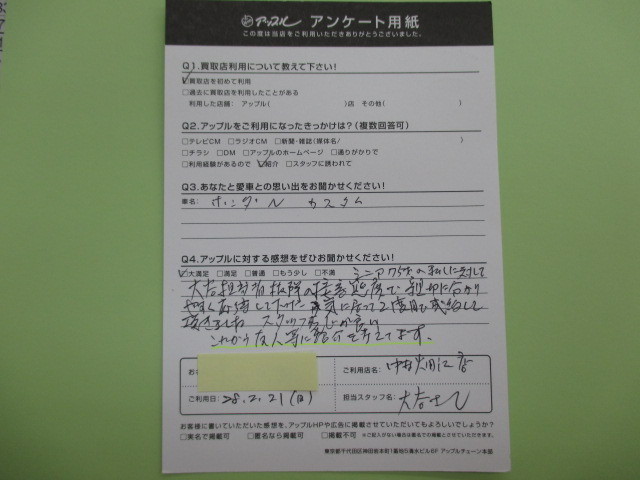 アップル アンケート用紙
この度は当店をご利用いただきありがとうございました。
Q1.買取店利用について教えて下さい!
□買取店を初めて利用
□過去に買取店を利用したことがある
利用した店舗: アップル( )店 その他( )
Q2.アップルをご利用になったきっかけは?(複数回答可)
□テレビCM □ラジオCM □新聞・雑誌(媒体名/ )
□チラシ □DM □アップルのホームページ □通りがかりで
□利用経験があるので □紹介 □スタッフに誘われて
Q3.あなたと愛車との思い出をお聞かせください!
車名: ホンダ N カスタム
Q4.アップルに対する感想をぜひお聞かせください!
□大満足 □満足 □普通 □もう少し □不満 シニア75歳の私に対して
大吉担当者 接客態度で 親切に分かり
やすく 2度目 成約して
頂きました スタッフ
これから友人等に紹介を考えてます。
お
ご利用店名:
ご利用日: 28.2.21(日)
担当スタッフ名: 大吉さん
お客様に書いていただいた感想を、アップルHPや広告に掲載させていただいてもよろしいでしょうか?
□実名で掲載可 □匿名なら掲載可 □掲載不可 ※ご記入がない場合は匿名での掲載とさせていただきます。
東京都千代田区神田錦本町1番地5清水ビル6F アップルチェーン本部